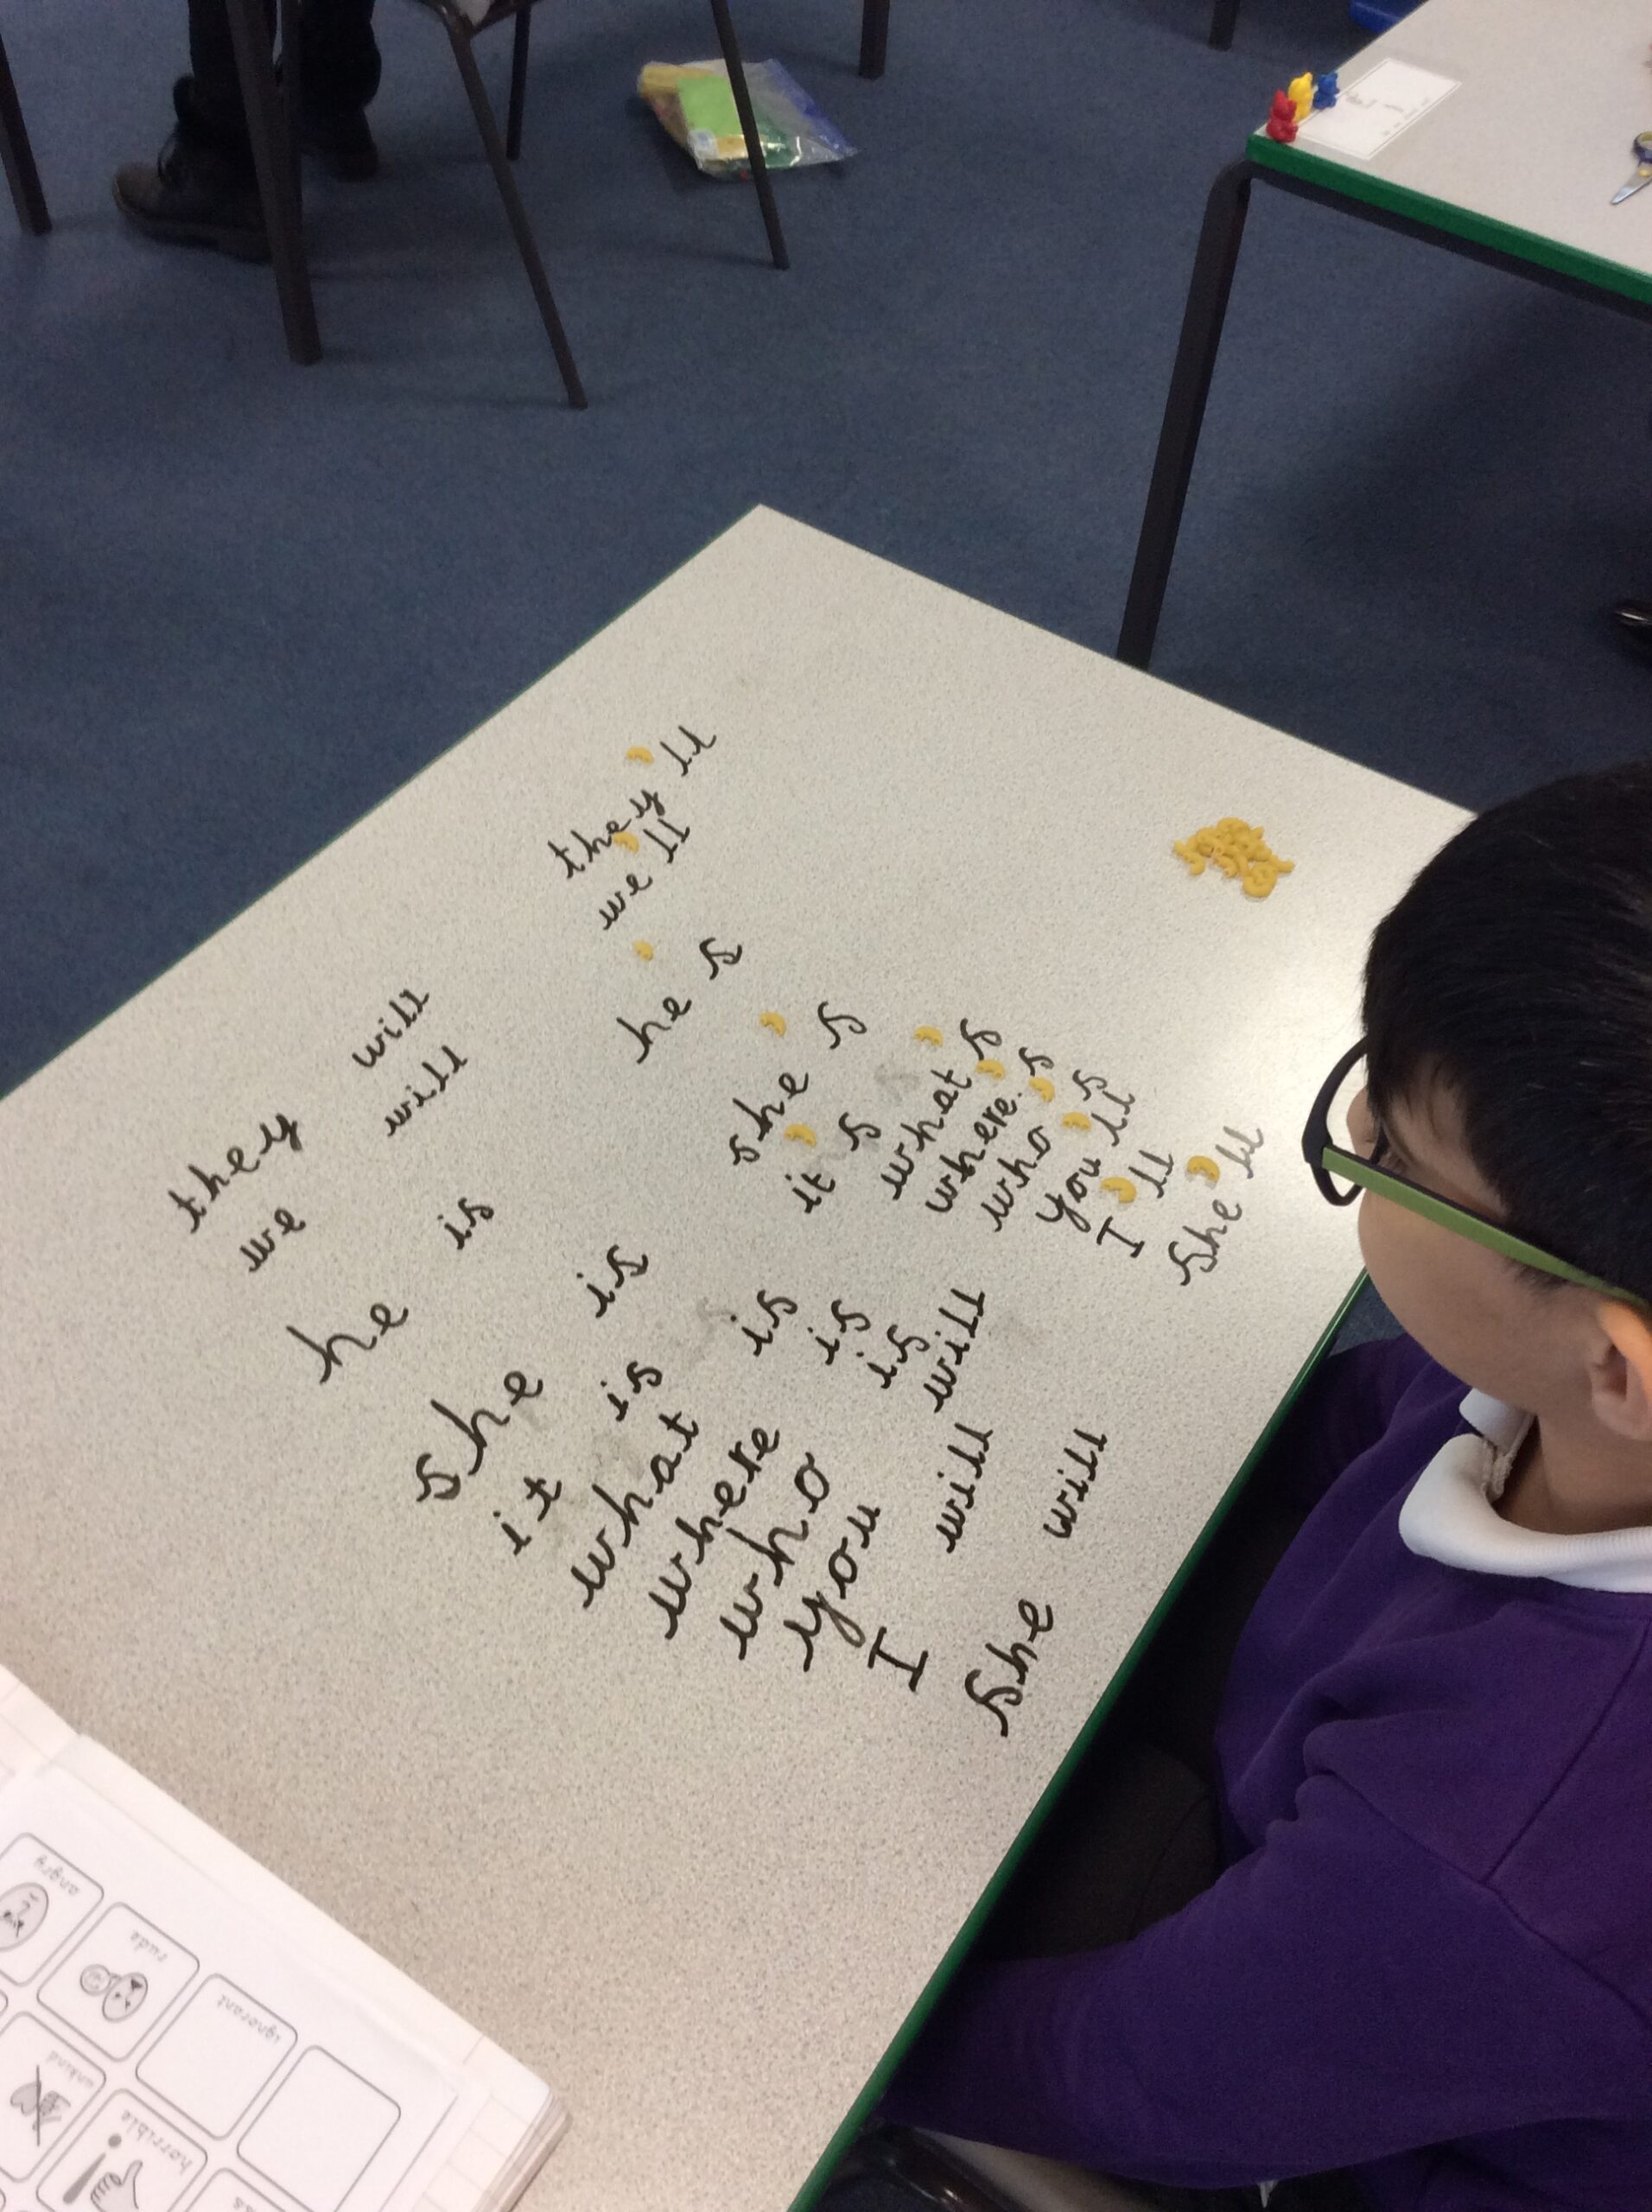 they will they'll
we will we'll
he is he's
she is she's
it is it's
what is what's
where is where's
who is who's
you will you'll
I will I'll
she will she'll
angry
rude
ignorant
unkind
horrible